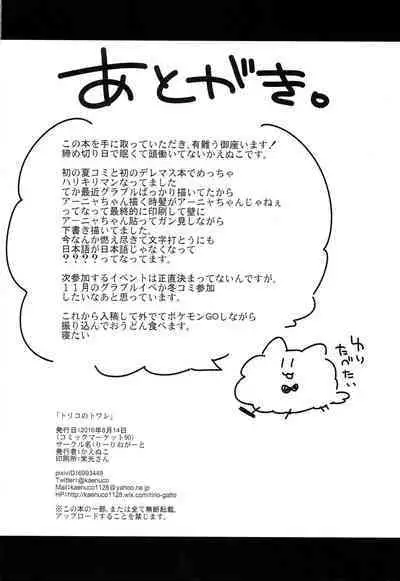 あとがき。
この本を手に取っていただき、有難う御座います!
締め切り日で眠くて頭働いてないかえぬこです。
初の夏コミと初のデレマス本でめっちゃ
ハリキリマンなってました
てか最近グラブルばっかり描いてたから
アーニャちゃん描く時髪がアーニャちゃんじゃねぇ
ってなって最終的に印刷して壁に
アーニャちゃん貼ってガン見しながら
下書き描いてました。
今なんか燃え尽きてて文字打とうにも
日本語が日本語じゃなくなって
????ってなってます。
次参加するイベントは正直決まってないんですが、
11月のグラブルイベか冬コミ参加
したいなあと思っています。
これから入稿して外でてポケモンGOしながら
振り込んでおうどん食べます。
寝たい
たべたい
「トリコのトワレ」
発行日:2016年8月14日
(コミックマーケット90)
サークル名:りーりねがーと
発行者:かえぬこ
印刷所:栄光さん
pixivID:6993449
Twitter:@kaenuco
Mail:kaenuco1128@yahoo.ne.jp
HP:http://kaenuco1128.wix.com/ririo-gatto
※この本の一部、または全て無断転載、
アップロードすることを禁じます。